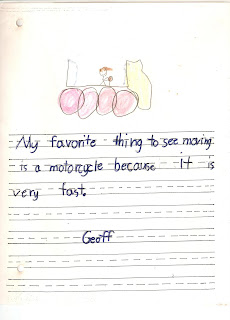 My favorite thing to see moving
is a motorcycle because it is
very fast.
Geoff